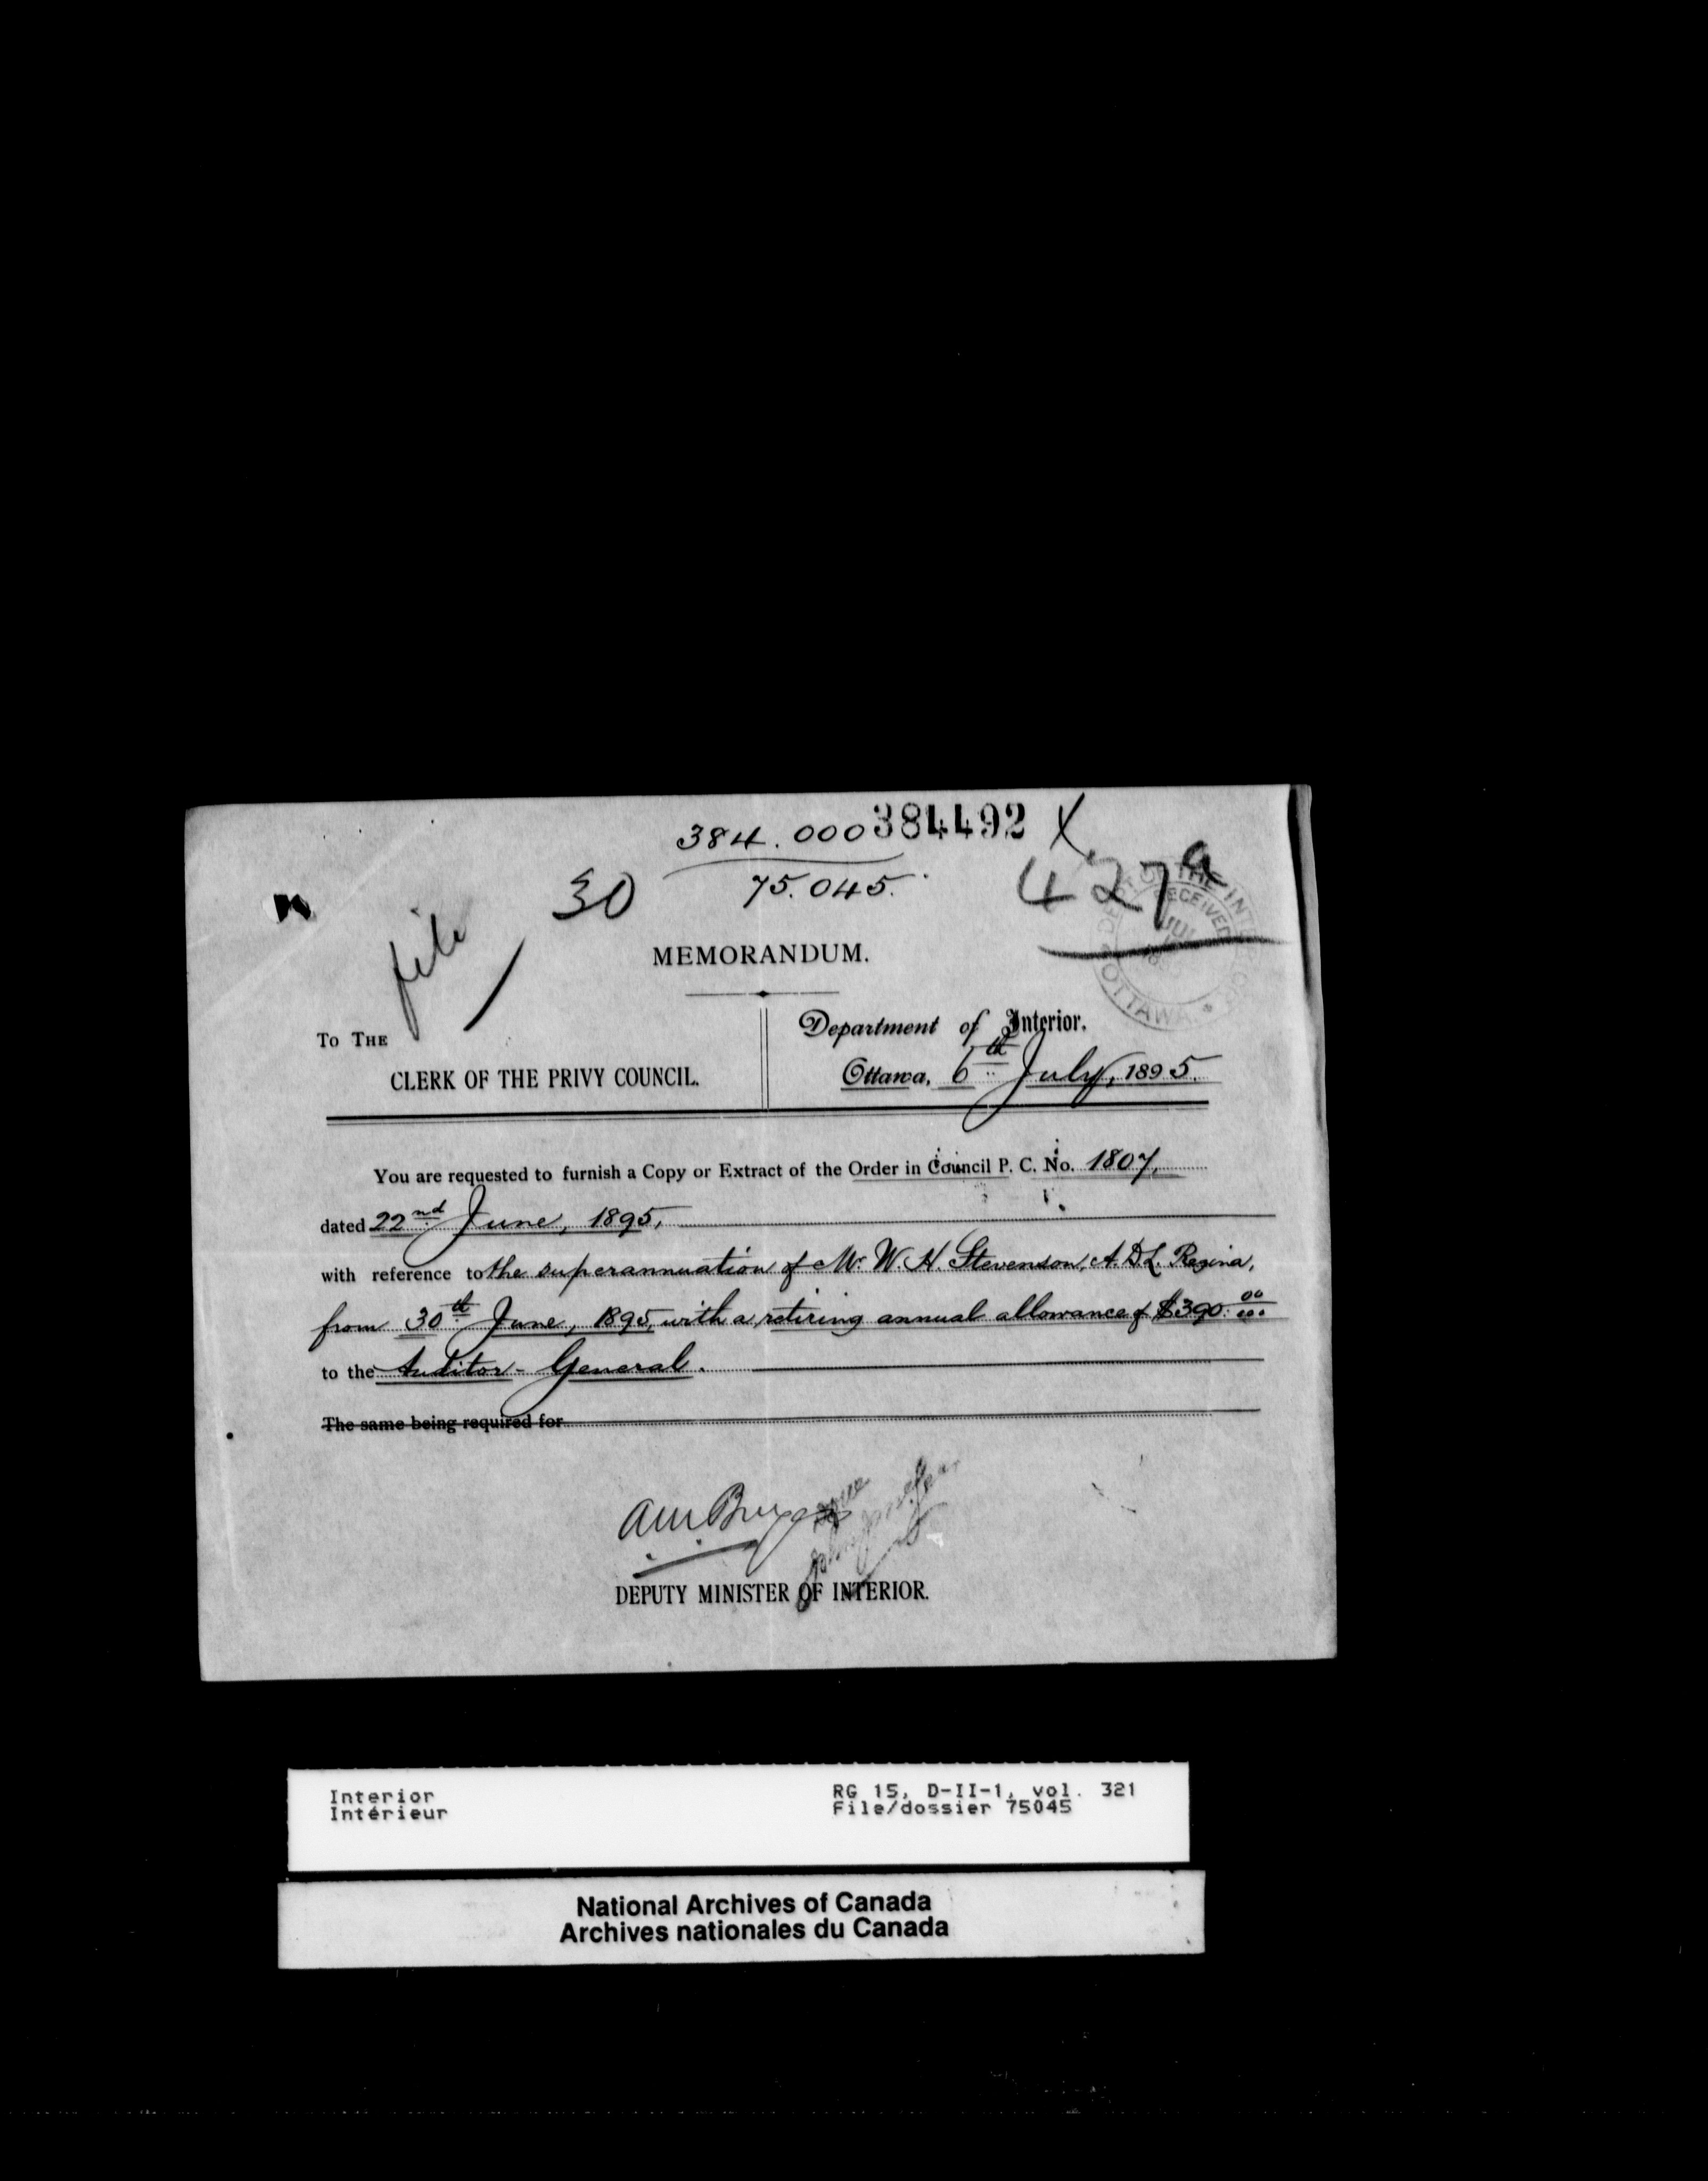 384.000 384492 X
30 75.045. 427a
file
DEPT OF THE INTERIOR
RECEIVED
JUL
OTTAWA.
MEMORANDUM.
TO THE
CLERK OF THE PRIVY COUNCIL.
Department of Interior.
Ottawa, 6th July, 1895.
You are requested to furnish a Copy or Extract of the Order in Council P. C. No. 1807,
dated 22nd June, 1895,
with reference to the superannuation of Mr. W. H. Stevenson, A.D.L. Regina,
from 30th June, 1895, with a retiring annual allowance of $390.00
to the Auditor-General.
The same being required for
DEPUTY MINISTER OF INTERIOR.
Interior RG 15, D-II-1, vol. 321
Intérieur File/dossier 75045
National Archives of Canada
Archives nationales du Canada